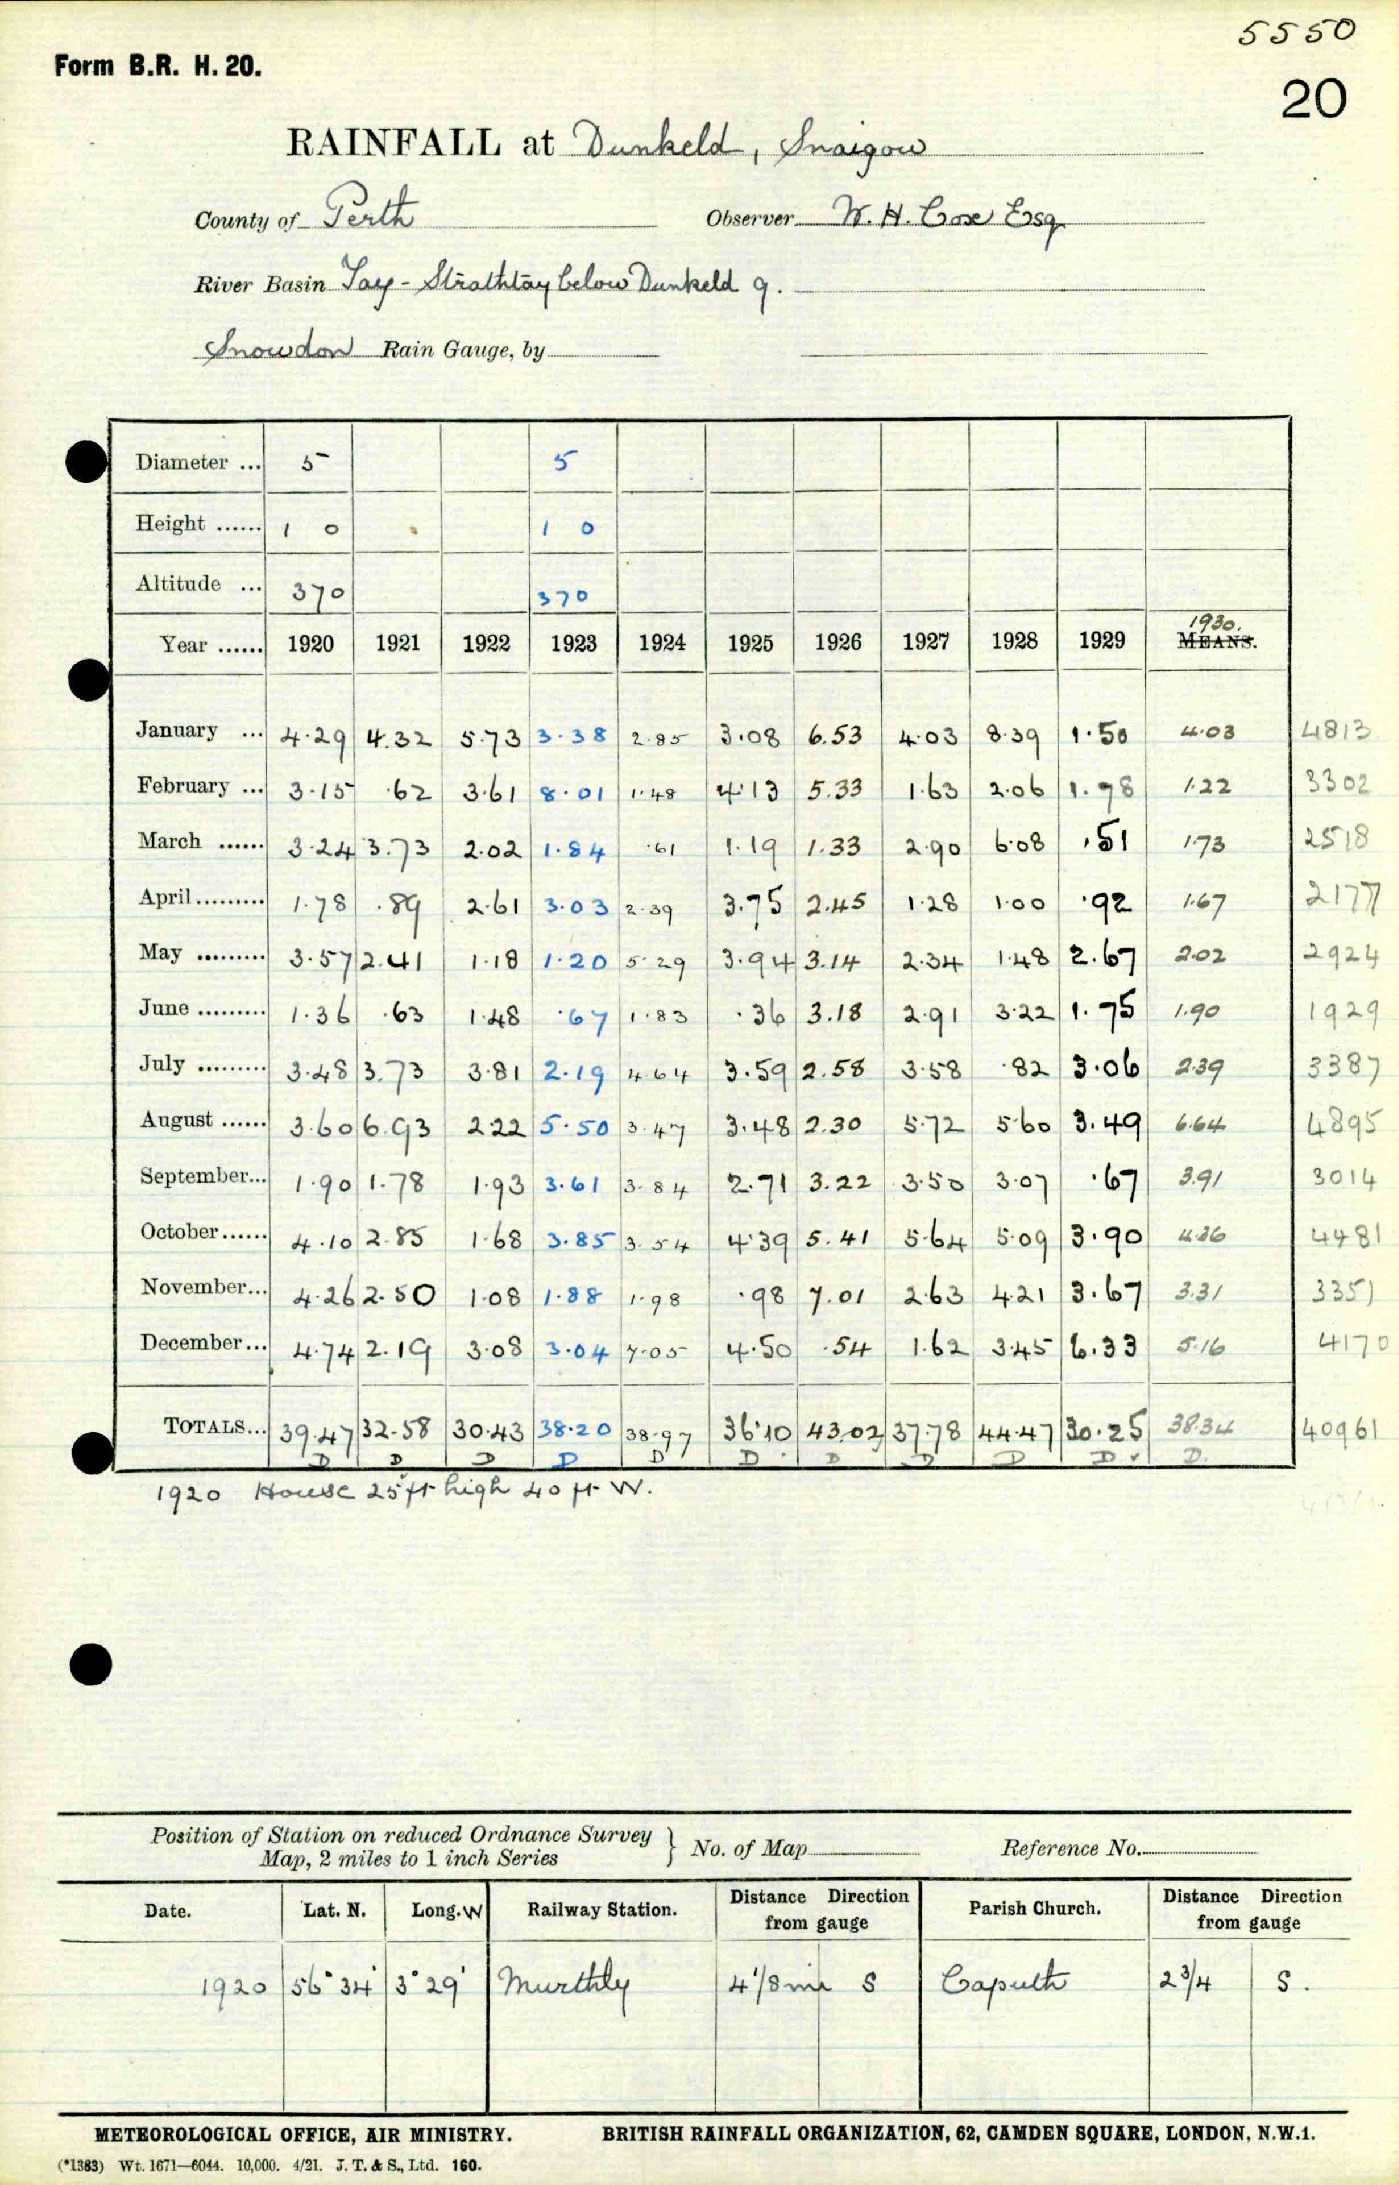 5550
Form B.R. H. 20.
20
RAINFALL at Dunkeld, Snaigow
County of Perth Observer W. H. Cox Esq
River Basin Tay - Strathtay below Dunkeld g.
Snowdon Rain Gauge, by
Diameter ... 5 5
Height ...... 1 0 1 0
Altitude ... 370 370
1930.
Year ...... 1920 1921 1922 1923 1924 1925 1926 1927 1928 1929 MEANS.
January ... 4.29 4.32 5.73 3.38 2.85 3.08 6.53 4.03 8.39 1.50 4.03 4813
February ... 3.15 .62 3.61 8.01 1.48 4.13 5.33 1.63 2.06 1.78 1.22 3302
March ...... 3.24 3.73 2.02 1.84 .61 1.19 1.33 2.90 6.08 .51 1.73 2518
April......... 1.78 .89 2.61 3.03 2.39 3.75 2.45 1.28 1.00 .92 1.67 2177
May ......... 3.57 2.41 1.18 1.20 5.29 3.94 3.14 2.34 1.48 2.67 2.02 2924
June ......... 1.36 .63 1.48 .67 1.83 .36 3.18 2.91 3.22 1.75 1.90 1929
July ......... 3.48 3.73 3.81 2.19 4.64 3.59 2.58 3.58 .82 3.06 2.39 3387
August ...... 3.60 6.93 2.22 5.50 3.47 3.48 2.30 5.72 5.60 3.49 6.64 4895
September... 1.90 1.78 1.93 3.61 3.84 2.71 3.22 3.50 3.07 .67 3.91 3014
October...... 4.10 2.85 1.68 3.85 3.54 4.39 5.41 5.64 5.09 3.90 4.36 4481
November... 4.26 2.50 1.08 1.88 1.98 .98 7.01 2.63 4.21 3.67 3.31 3351
December... 4.74 2.19 3.08 3.04 7.05 4.50 .54 1.62 3.45 6.33 5.16 4170
TOTALS... 39.47 32.58 30.43 38.20 38.97 36.10 43.02 37.78 44.47 30.25 38.34 40961
D D D D D D D D D D D.
1920 House 25 ft high 40 ft W.
Position of Station on reduced Ordnance Survey
Map, 2 miles to 1 inch Series } No. of Map Reference No.
Date. Lat. N. Long. W Railway Station. Distance Direction from gauge Parish Church. Distance Direction from gauge
1920 56° 34' 3° 29' Murthly 4 1/8 mi S Caputh 2 3/4 S.
METEOROLOGICAL OFFICE, AIR MINISTRY. BRITISH RAINFALL ORGANIZATION, 62, CAMDEN SQUARE, LONDON, N.W.1.
(*1383) Wt. 1671—6044. 10,000. 4/21. J. T. & S., Ltd. 160.